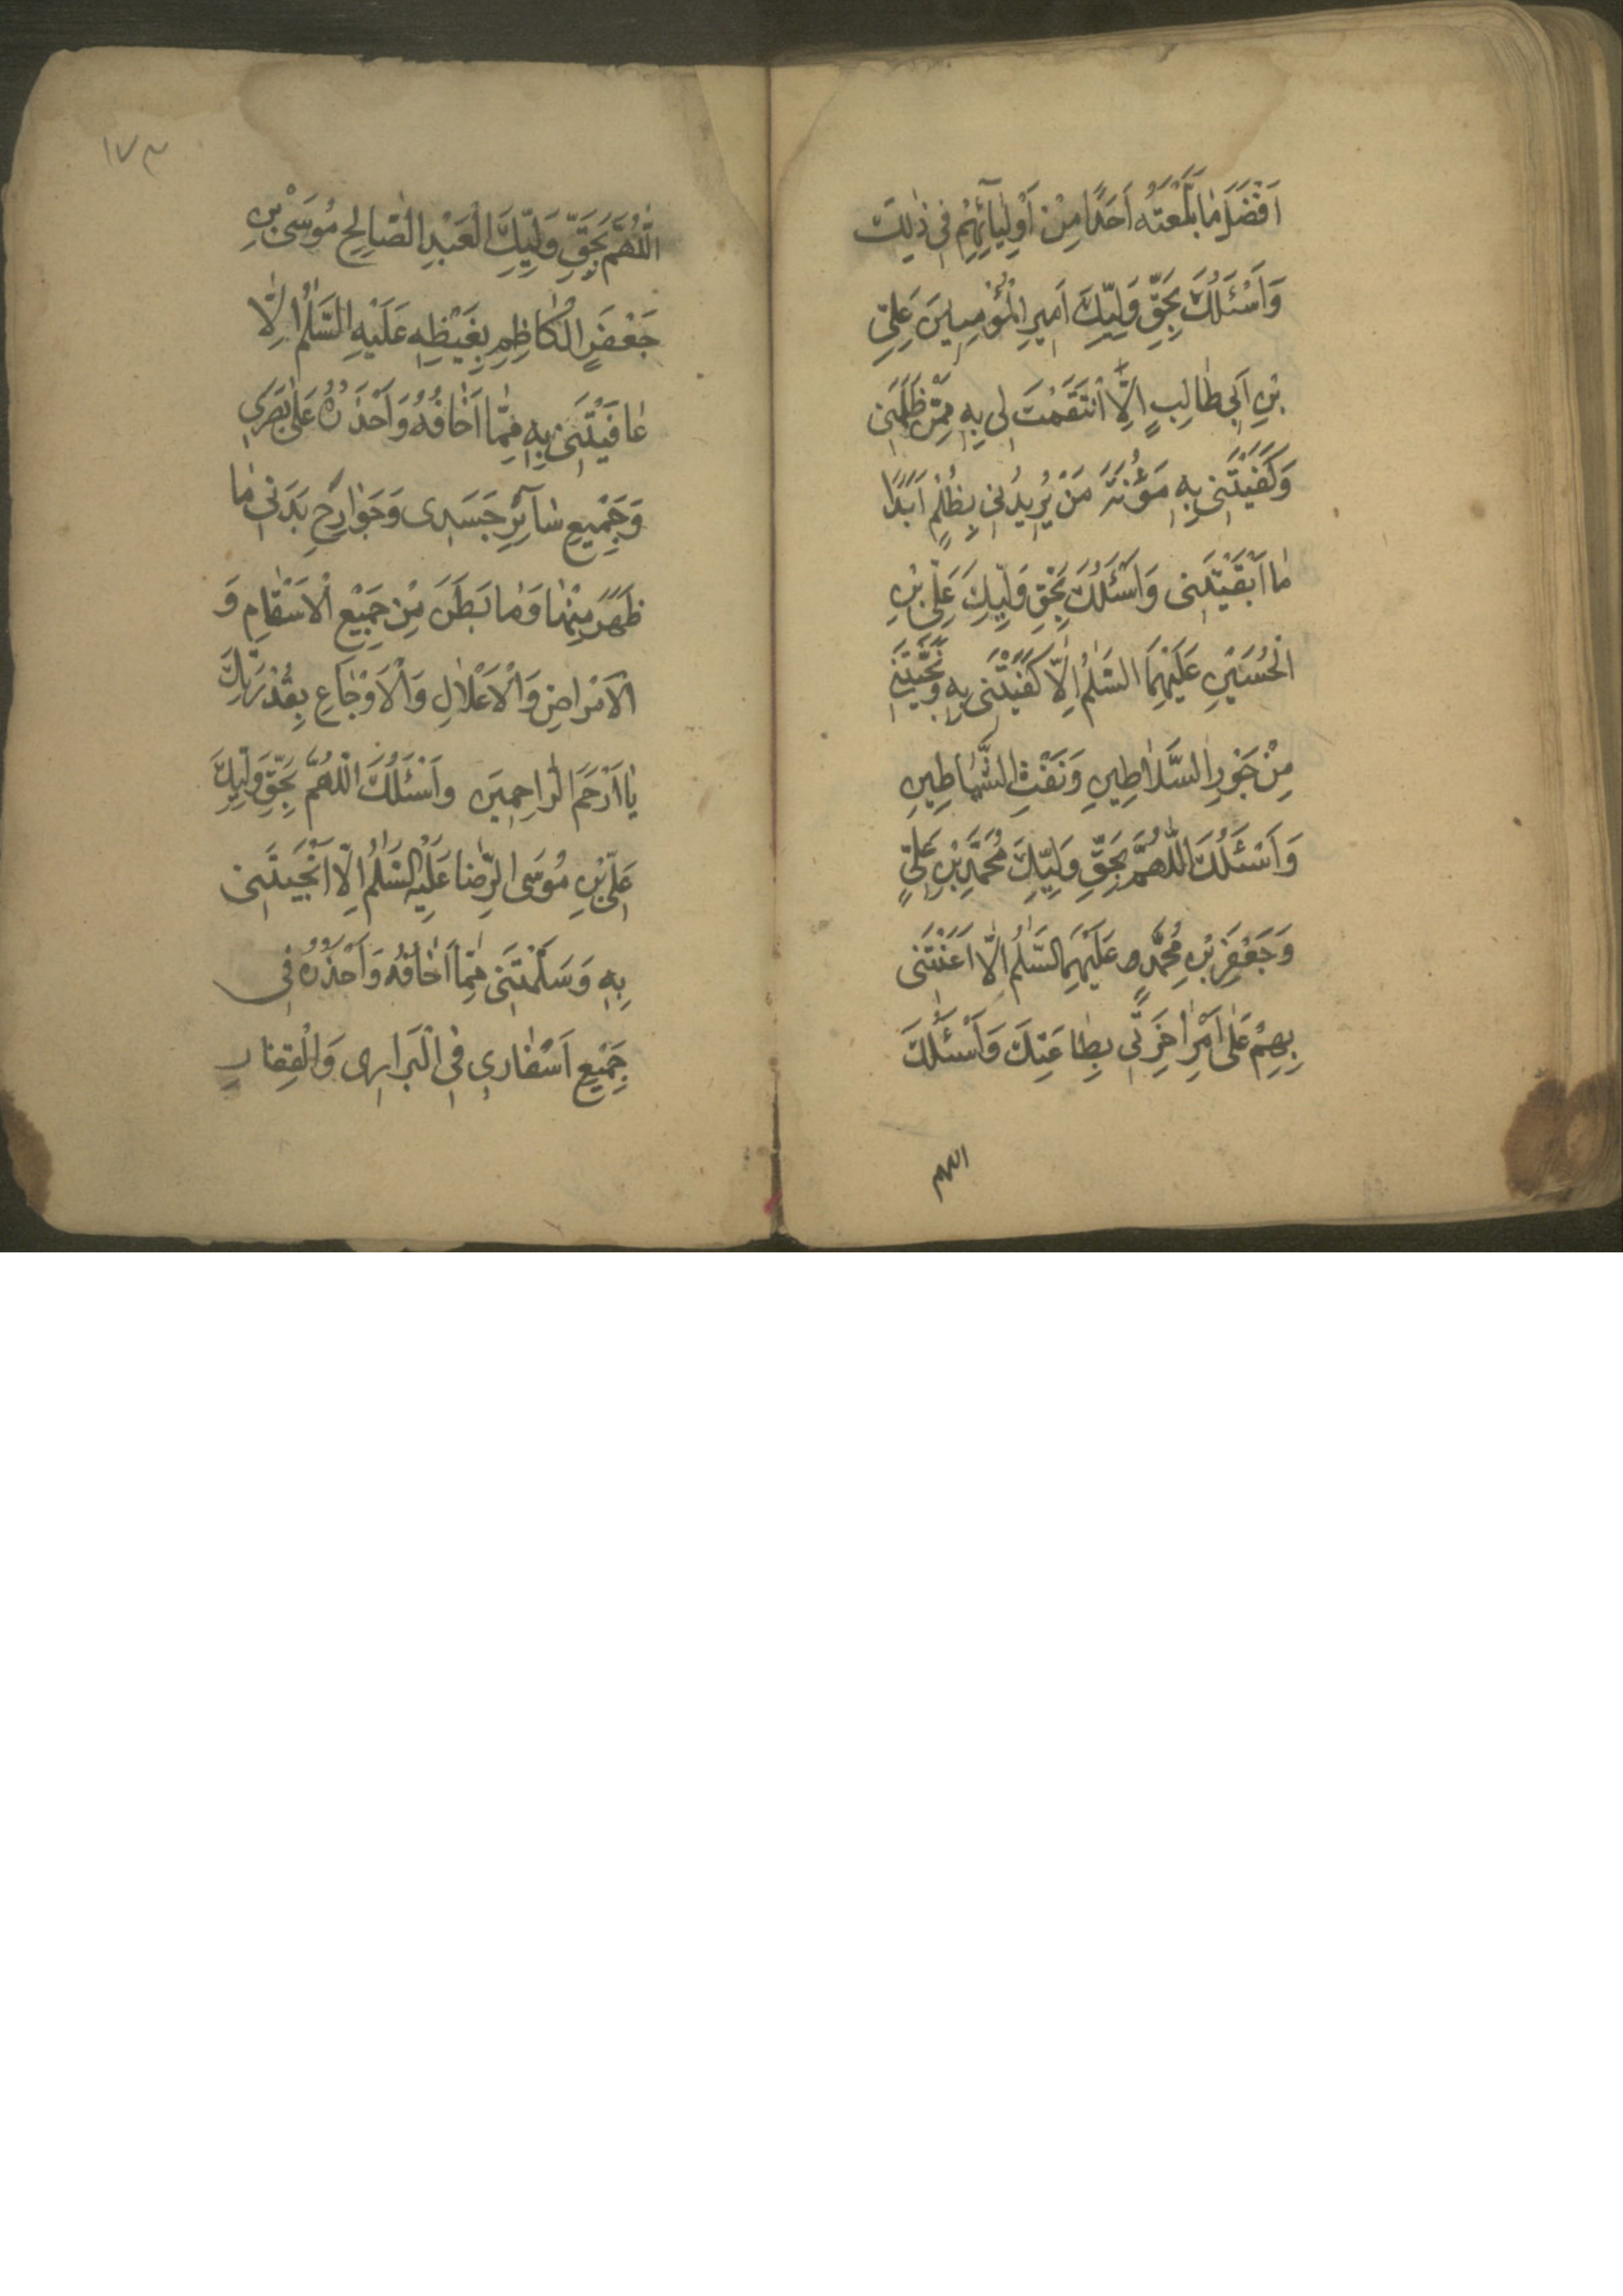 اَفْضَلَ مٰا بَلَّغْتَهُ اَحَدًا مِنْ اَوْلِيٰآئِهِمْ فِي ذٰلِكَ
وَاَسْئَلُكَ بِحَقِّ وَلِيِّكَ اَمِيرِ الْمُؤْمِنِينَ عَلِيِّ
بْنِ اَبِي طٰالِبٍ اِلَّا انْتَقَمْتَ لِي بِهِ مِمَّنْ ظَلَمَنِي
وَكَفَيْتَنِي بِهِ مَؤُنَةَ مَنْ يُرِيدُنِي بِظُلْمٍ اَبَدًا
مٰا اَبْقَيْتَنِي وَاَسْئَلُكَ بِحَقِّ وَلِيِّكَ عَلِيِّ بْنِ
الْحُسَيْنِ عَلَيْهِمَا السَّلٰمُ اِلَّا كَفَيْتَنِي بِهِ وَنَجَّيْتَنِي
مِنْ جَوْرِ السَّلَاطِينِ وَنَفْثِ الشَّيٰاطِينِ
وَاَسْئَلُكَ اللّٰهُمَّ بِحَقِّ وَلِيِّكَ مُحَمَّدِ بْنِ عَلِيٍّ
وَجَعْفَرِ بْنِ مُحَمَّدٍ عَلَيْهِمَا السَّلٰمُ اِلَّا اَعَنْتَنِي
بِهِمْ عَلٰى اَمْرِ اٰخِرَتِي بِطٰاعَتِكَ وَاَسْئَلُكَ
اللهم
١٧٣
اللّٰهُمَّ بِحَقِّ وَلِيِّكَ الْعَبْدِ الصّٰالِحِ مُوسَى بْنِ
جَعْفَرٍ الْكٰاظِمِ بِغَيْظِهِ عَلَيْهِ السَّلٰمُ اِلَّا
عٰافَيْتَنِي بِهِ مِمّٰا اَخٰافُهُ وَاَحْذَرُهُ عَلٰى بَصَرِي
وَجَمِيعِ سٰآئِرِ جَسَدِي وَجَوٰارِحِ بَدَنِي مٰا
ظَهَرَ مِنْهٰا وَمٰا بَطَنَ مِنْ جَمِيعِ الْاَسْقٰامِ وَ
الْاَمْرٰاضِ وَالْاَعْلٰالِ وَالْاَوْجٰاعِ بِقُدْرَتِكَ
يٰا اَرْحَمَ الرّٰاحِمِينَ وَاَسْئَلُكَ اللّٰهُمَّ بِحَقِّ وَلِيِّكَ
عَلِيِّ بْنِ مُوسَى الرِّضٰا عَلَيْهِ السَّلٰمُ اِلَّا اَنْجَيْتَنِي
بِهِ وَسَلَّمْتَنِي مِمّٰا اَخٰافُهُ وَاَحْذَرُهُ فِي
جَمِيعِ اَسْفٰارِي فِي الْبَرٰارِي وَالْقِفٰارِ